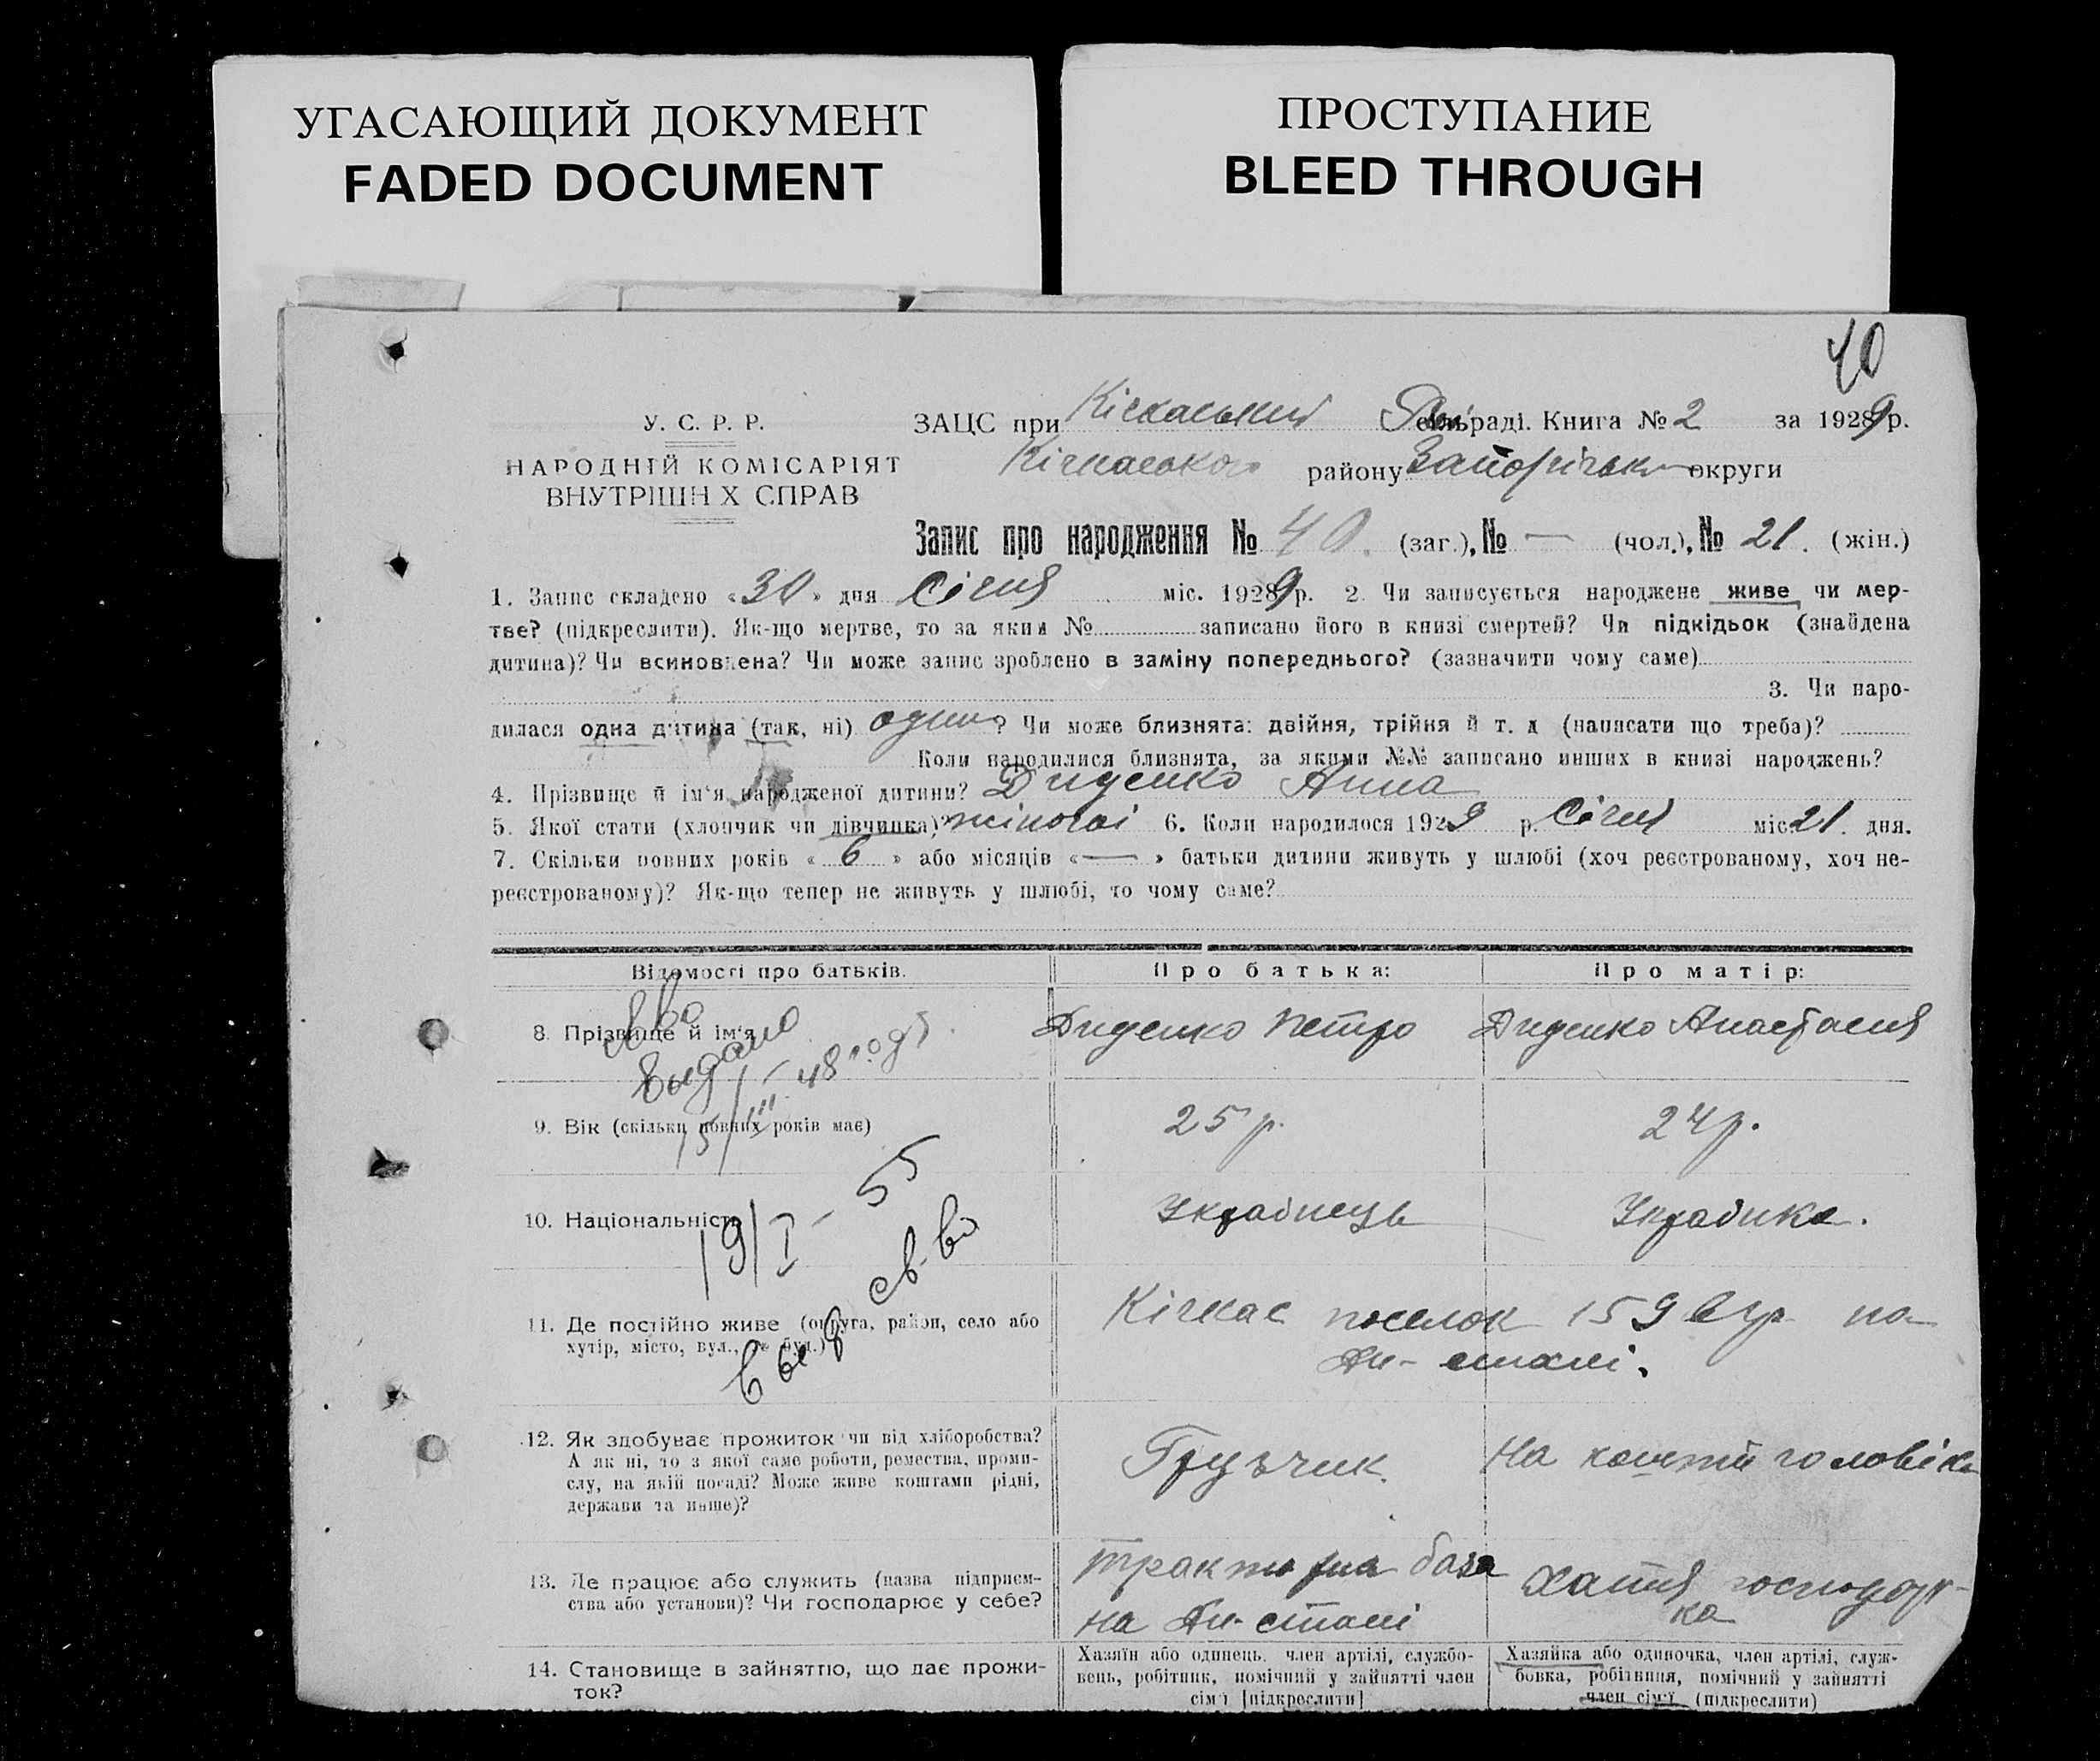 УГАСАЮЩИЙ ДОКУМЕНТ
FADED DOCUMENT
ПРОСТУПАНИЕ
BLEED THROUGH
40
У. С. Р. Р.
НАРОДНІЙ КОМІСАРІЯТ
ВНУТРІШН Х СПРАВ
ЗАЦС при Кіскаський раді. Книга № 2 за 1929 р.
Кічкаського району Запорізьк округи
Запис про народження № 40. (заг.), № — (чол.), № 21. (жін.)
1. Запис складено «30» дня Січня міс. 1929 р. 2 Чи записується народжене живе чи мер-
тве? (підкреслити). Як-що мертве, то за яким № записано його в книзі смертей? Чи підкідьок (знайдена
дитина)? Чи всиновлена? Чи може запис зроблено в заміну попереднього? (зазначити чому саме)
3. Чи наро-
дилася одна дитина (так, ні) одна ? Чи може близнята: двійня, трійня й т. д (написати що треба)?
Коли народилися близнята, за якими №№ записано инших в книзі народжень?
4. Прізвище й ім'я народженої дитини? Диденко Анна
5. Якої стати (хлопчик чи дівчинка)? жіночої 6. Коли народилося 1929 р. Січня міс. 21. дня.
7. Скільки повних років «6» або місяців «—» батьки дитини живуть у шлюбі (хоч реєстрованому, хоч не-
реєстрованому)? Як-що тепер не живуть у шлюбі, то чому саме?
Відомості про батьків. Про батька: Про матір:
8. Прізвище й ім'я Диденко Петро Диденко Анастасия
выдано
15/III - 48 года
9. Вік (скільки повних років має) 25 р. 24 р.
19/I - 55
выд св-во
10. Національність Українець Українка.
11. Де постійно живе (округа, район, село або
хутір, місто, вул., № буд.) Кічкас поселок 159 на
Дн-сталі.
12. Як здобуває прожиток чи від хліборобства?
А як ні, то з якої саме роботи, ремества, проми-
слу, на якій посаді? Може живе коштами рідні,
держави та инше)?
Грузчик. На кошти головіка
13. Де працює або служить (назва підприєм-
ства або установи)? Чи господарює у себе?
тракторна база
на Дн-сталі
Хатня господар-
ка
14. Становище в зайняттю, що дає прожи-
ток?
Хазяїн або одинець, член артілі, службо-
вець, робітник, помічний у зайнятті член
сім'ї [підкреслити]
Хазяйка або одиночка, член артілі, служ-
бовка, робітниця, помічний у зайнятті
член сім'ї (підкреслити)